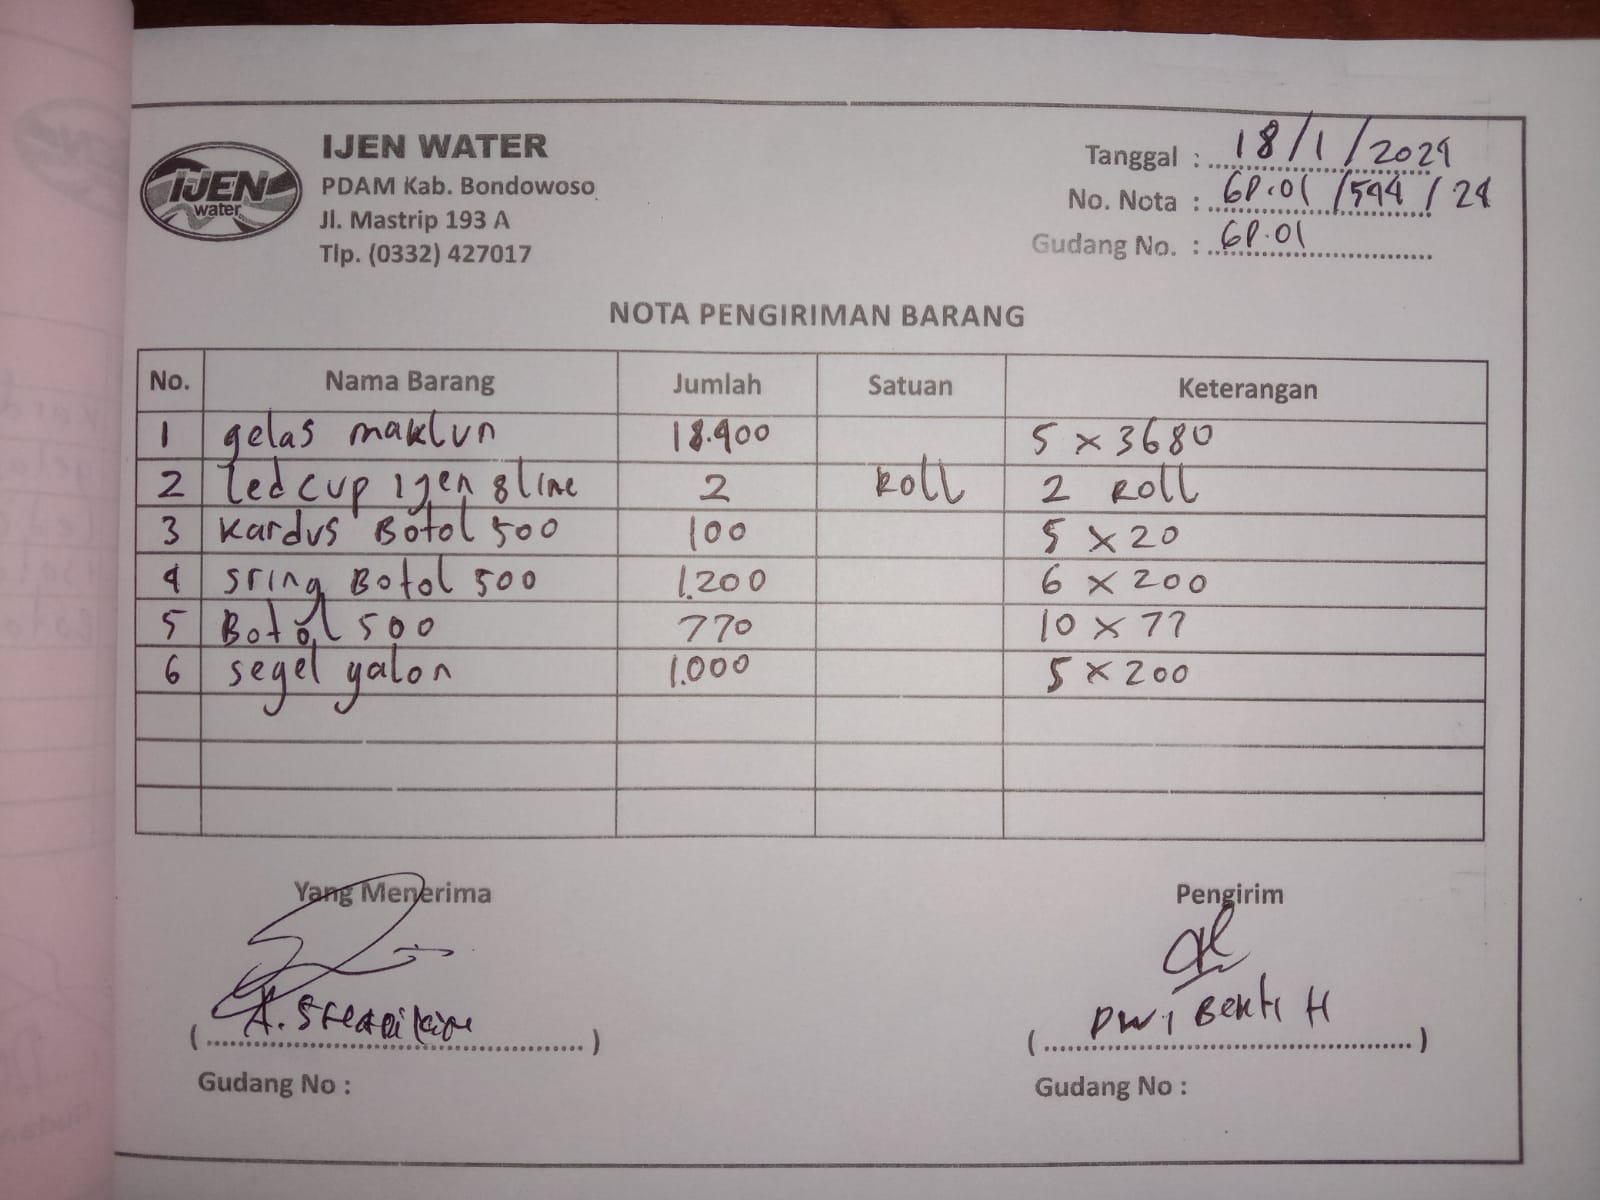 IJEN water
IJEN WATER
PDAM Kab. Bondowoso
Jl. Mastrip 193 A
Tlp. (0332) 427017
Tanggal : 18/1/2024
No. Nota : GP.01 /544 / 24
Gudang No. : GP.01
NOTA PENGIRIMAN BARANG
No. Nama Barang Jumlah Satuan Keterangan
1 gelas maklun 18.400 5 x 3680
2 Led cup ijen 8 line 2 Roll 2 Roll
3 Kardus Botol 500 100 5 x 20
4 sring Botol 500 1.200 6 x 200
5 Botol 500 770 10 x 77
6 segel galon 1.000 5 x 200
Yang Menerima Pengirim
( A. ) ( Dwi Bekti H )
Gudang No : Gudang No :